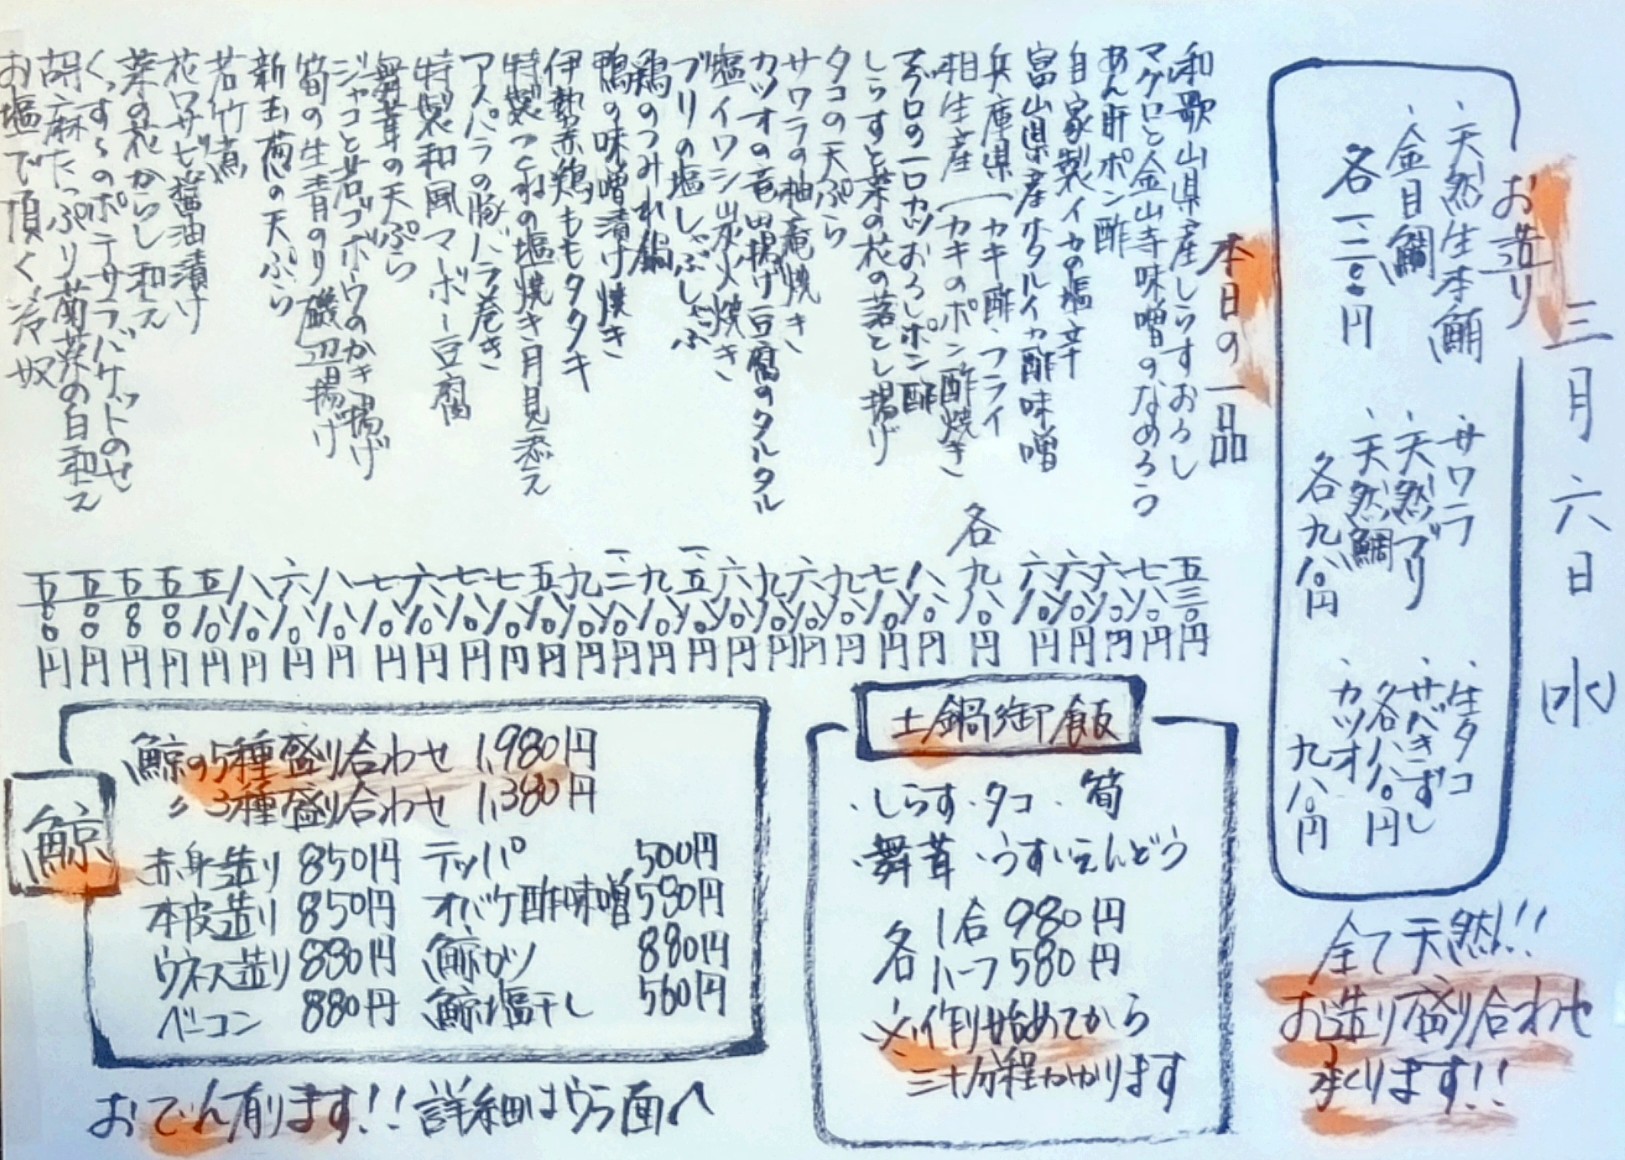 三月六日 水
お造り
・天然生本鮪
・金目鯛
各一二〇〇円
・サワラ
・天然ブリ
・天然鯛
各九八〇円
・生タコ
・サバきずし
各八八〇円
・カツオ
九八〇円
全て天然!!
お造り盛り合わせ
承ります!!
本日の一品
和歌山県産しらすおろし 五三〇円
マグロと金山寺味噌のなめろう 七八〇円
あん肝ポン酢 六八〇円
自家製イカの塩辛 六八〇円
富山県産ホタルイカ酢味噌 六八〇円
兵庫県 カキ酢・フライ
相生産 カキのポン酢焼き 各九八〇円
マグロの一口カツおろしポン酢 八八〇円
しらすと菜の花の落とし揚げ 七八〇円
タコの天ぷら 九八〇円
サワラの柚庵焼き 六八〇円
カツオの竜田揚げ豆腐のタルタル 九八〇円
塩イワシ炭火焼き 六八〇円
ブリの塩しゃぶしゃぶ 一、五八〇円
鶏のつみれ鍋 九八〇円
鴨の味噌漬け焼き 一、二八〇円
伊勢赤鶏ももタタキ 九八〇円
特製つくねの塩焼き月見添え 五八〇円
アスパラの豚バラ巻き 七八〇円
特製和風マーボー豆腐 七八〇円
舞茸の天ぷら 六八〇円
ジャコと若ゴボウのかき揚げ 七八〇円
筍の生青のり磯辺揚げ 八八〇円
新玉葱の天ぷら 六八〇円
若竹煮 八八〇円
花ワサビ醤油漬け 五八〇円
菜の花からし和え 五〇〇円
くっすらのポテサラバケットのせ 五八〇円
胡麻たっぷり菊菜の白和え 五〇〇円
お塩で頂く冷奴 五〇〇円
土鍋御飯
・しらす・タコ・筍
・舞茸・うすいえんどう
各 1合 980円
各 ハーフ 580円
※作り始めてから
三十分程かかります
鯨
鯨の5種盛り合わせ 1,980円
〃 3種盛り合わせ 1,380円
赤身造り 850円 テッパ 500円
本皮造り 850円 オバケ酢味噌 580円
ウネス造り 880円 鯨カツ 880円
ベーコン 880円 鯨塩干し 560円
おでん有ります!!詳細はウラ面へ